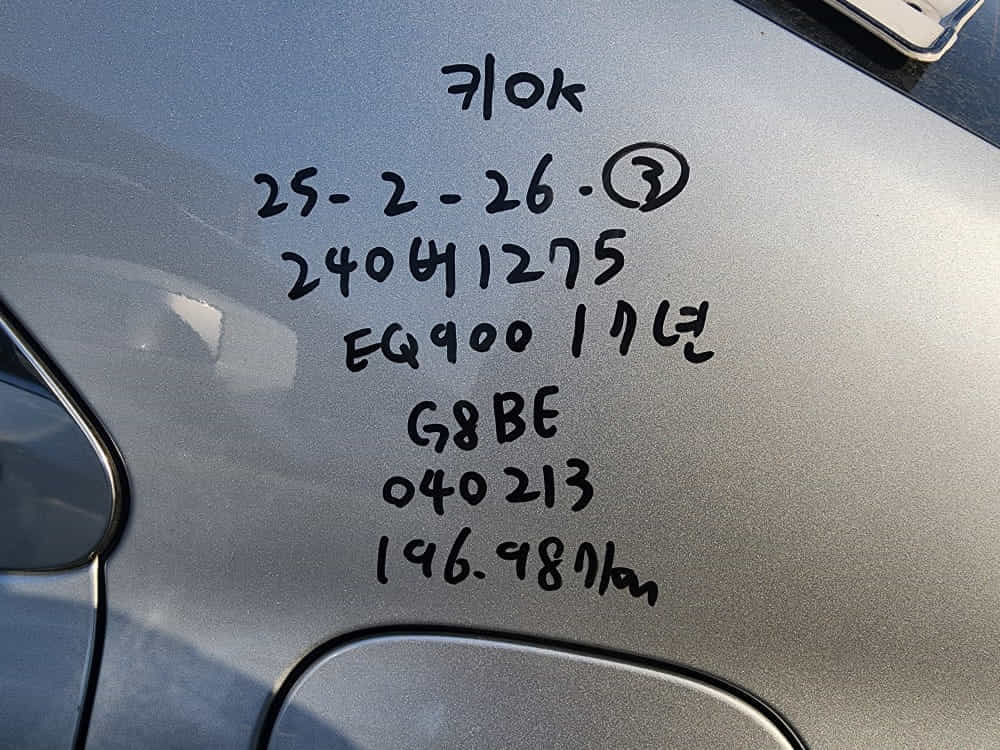 키OK
25-2-26.③
240버1275
EQ900 17년
G8BE
040213
196.987km